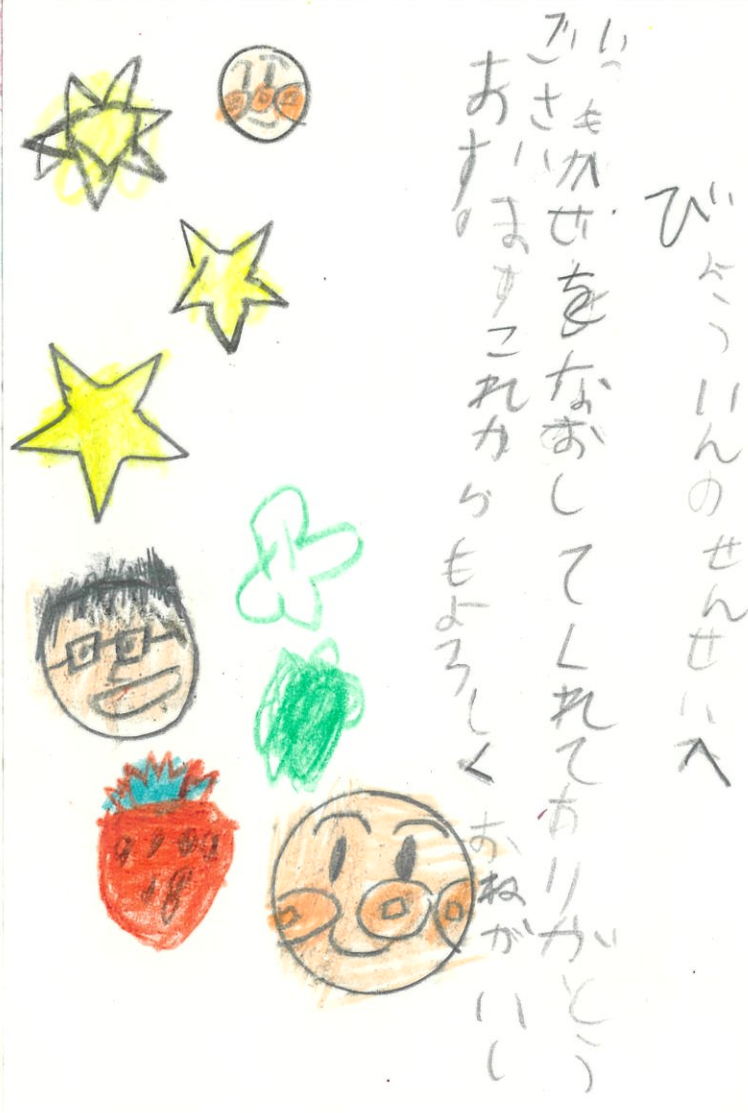 びょういんのせんせいへ
いつもかぜをなおしてくれてありがとう
ごさいますこれからもよろしくおねがいし
ます。